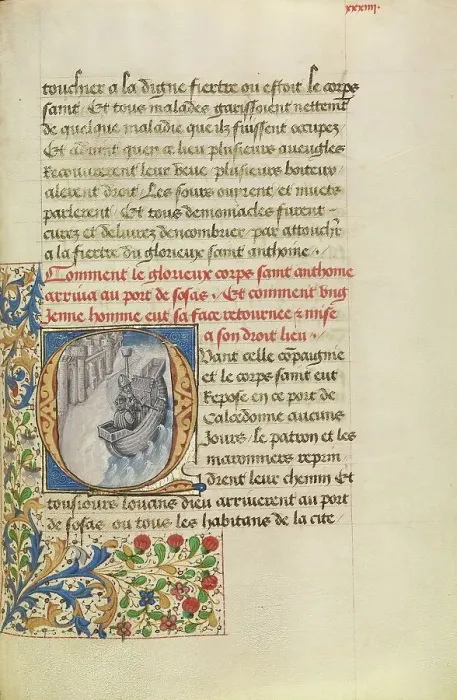 xxxiiii.
touchier a la digne fiertre ou estoit le corps
saint / Et tous malades garissoient nettemt
de quelque maladie que ilz fussent occupez
Et aduint quen ce lieu plusieurs aueugles
Recouurerent leur veue / plusieurs boiteux
alerent droit / Les sours ouyrent et muets
parlerent / Et tous demoniacles furent -
curez et deliurez dencombrier / par attouchr
a la fiertre du glorieux saint anthoine .
Comment le glorieux corps saint anthoine
arriua au port de sosas . Et comment vng
Jenne homme eut sa face retournee & mise
a son droit lieu .
Quant celle compaignie
et le corps saint eut
Repose en ce port de
Calcedonne aucuns
Jours / Le patron et les
maronniers reprin
drent leur chemin Et
tousiours louans dieu arriuerent au port
de sosas / ou tous les habitans de la cite /